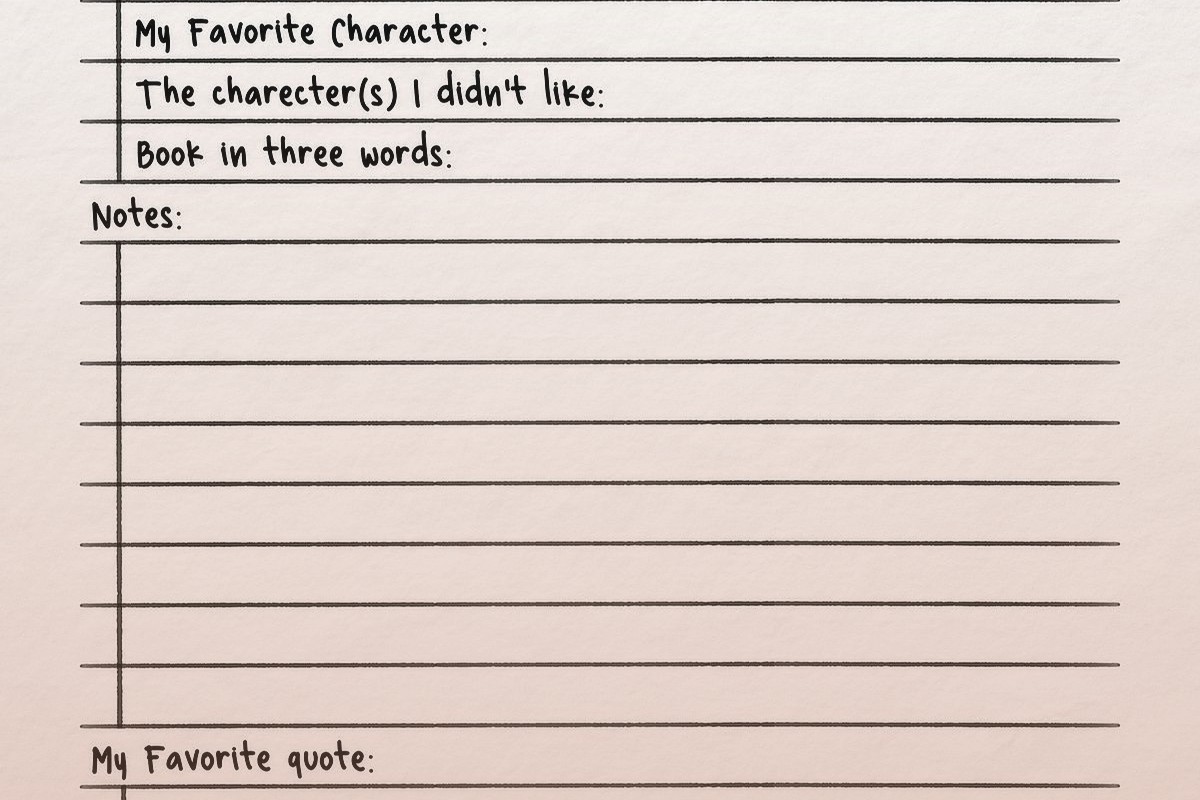 My Favorite Character:
The charecter(s) I didn't like:
Book in three words:
Notes:
My Favorite quote: